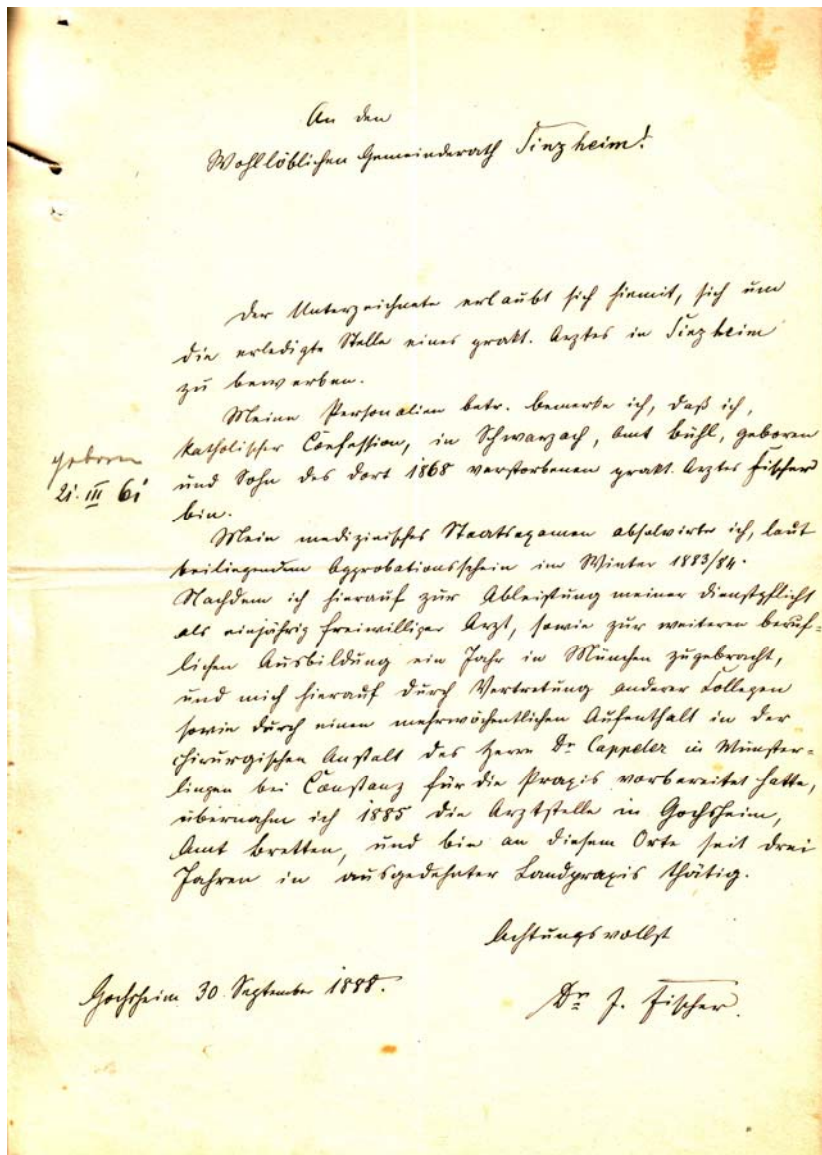 An den
Wohllöblichen Gemeinderath Sinzheim!
Der Unterzeichnete erlaubt sich hiemit, sich um
die erledigte Stelle eines prakt. Arztes in Sinzheim
zu bewerben.
Meine Personalien betr. bemerke ich, daß ich,
katholischer Confession, in Schwarzach, Amt Bühl, geboren
und Sohn des dort 1868 verstorbenen prakt. Arztes Fischer
bin.
geboren
21. III 61
Mein medizinisches Staatsexamen absolvirte ich, laut
beiliegendem Approbationsschein im Winter 1883/84.
Nachdem ich hierauf zur Ableistung meiner Dienstpflicht
als einjährig freiwilliger Arzt, sowie zur weiteren beruf=
lichen Ausbildung ein Jahr in München zugebracht,
und mich hierauf durch Vertretung anderer Collegen
sowie durch einen mehrwöchentlichen Aufenthalt in der
chirurgischen Anstalt des Herrn Dr Cappeler in Münster=
lingen bei Constanz für die Praxis vorbereitet hatte,
übernahm ich 1885 die Arztstelle in Gochsheim,
Amt Bretten, und bin an diesem Orte seit drei
Jahren in ausgedehnter Landpraxis thätig.
Achtungsvollst
Gochsheim 30 September 1888.
Dr J. Fischer.